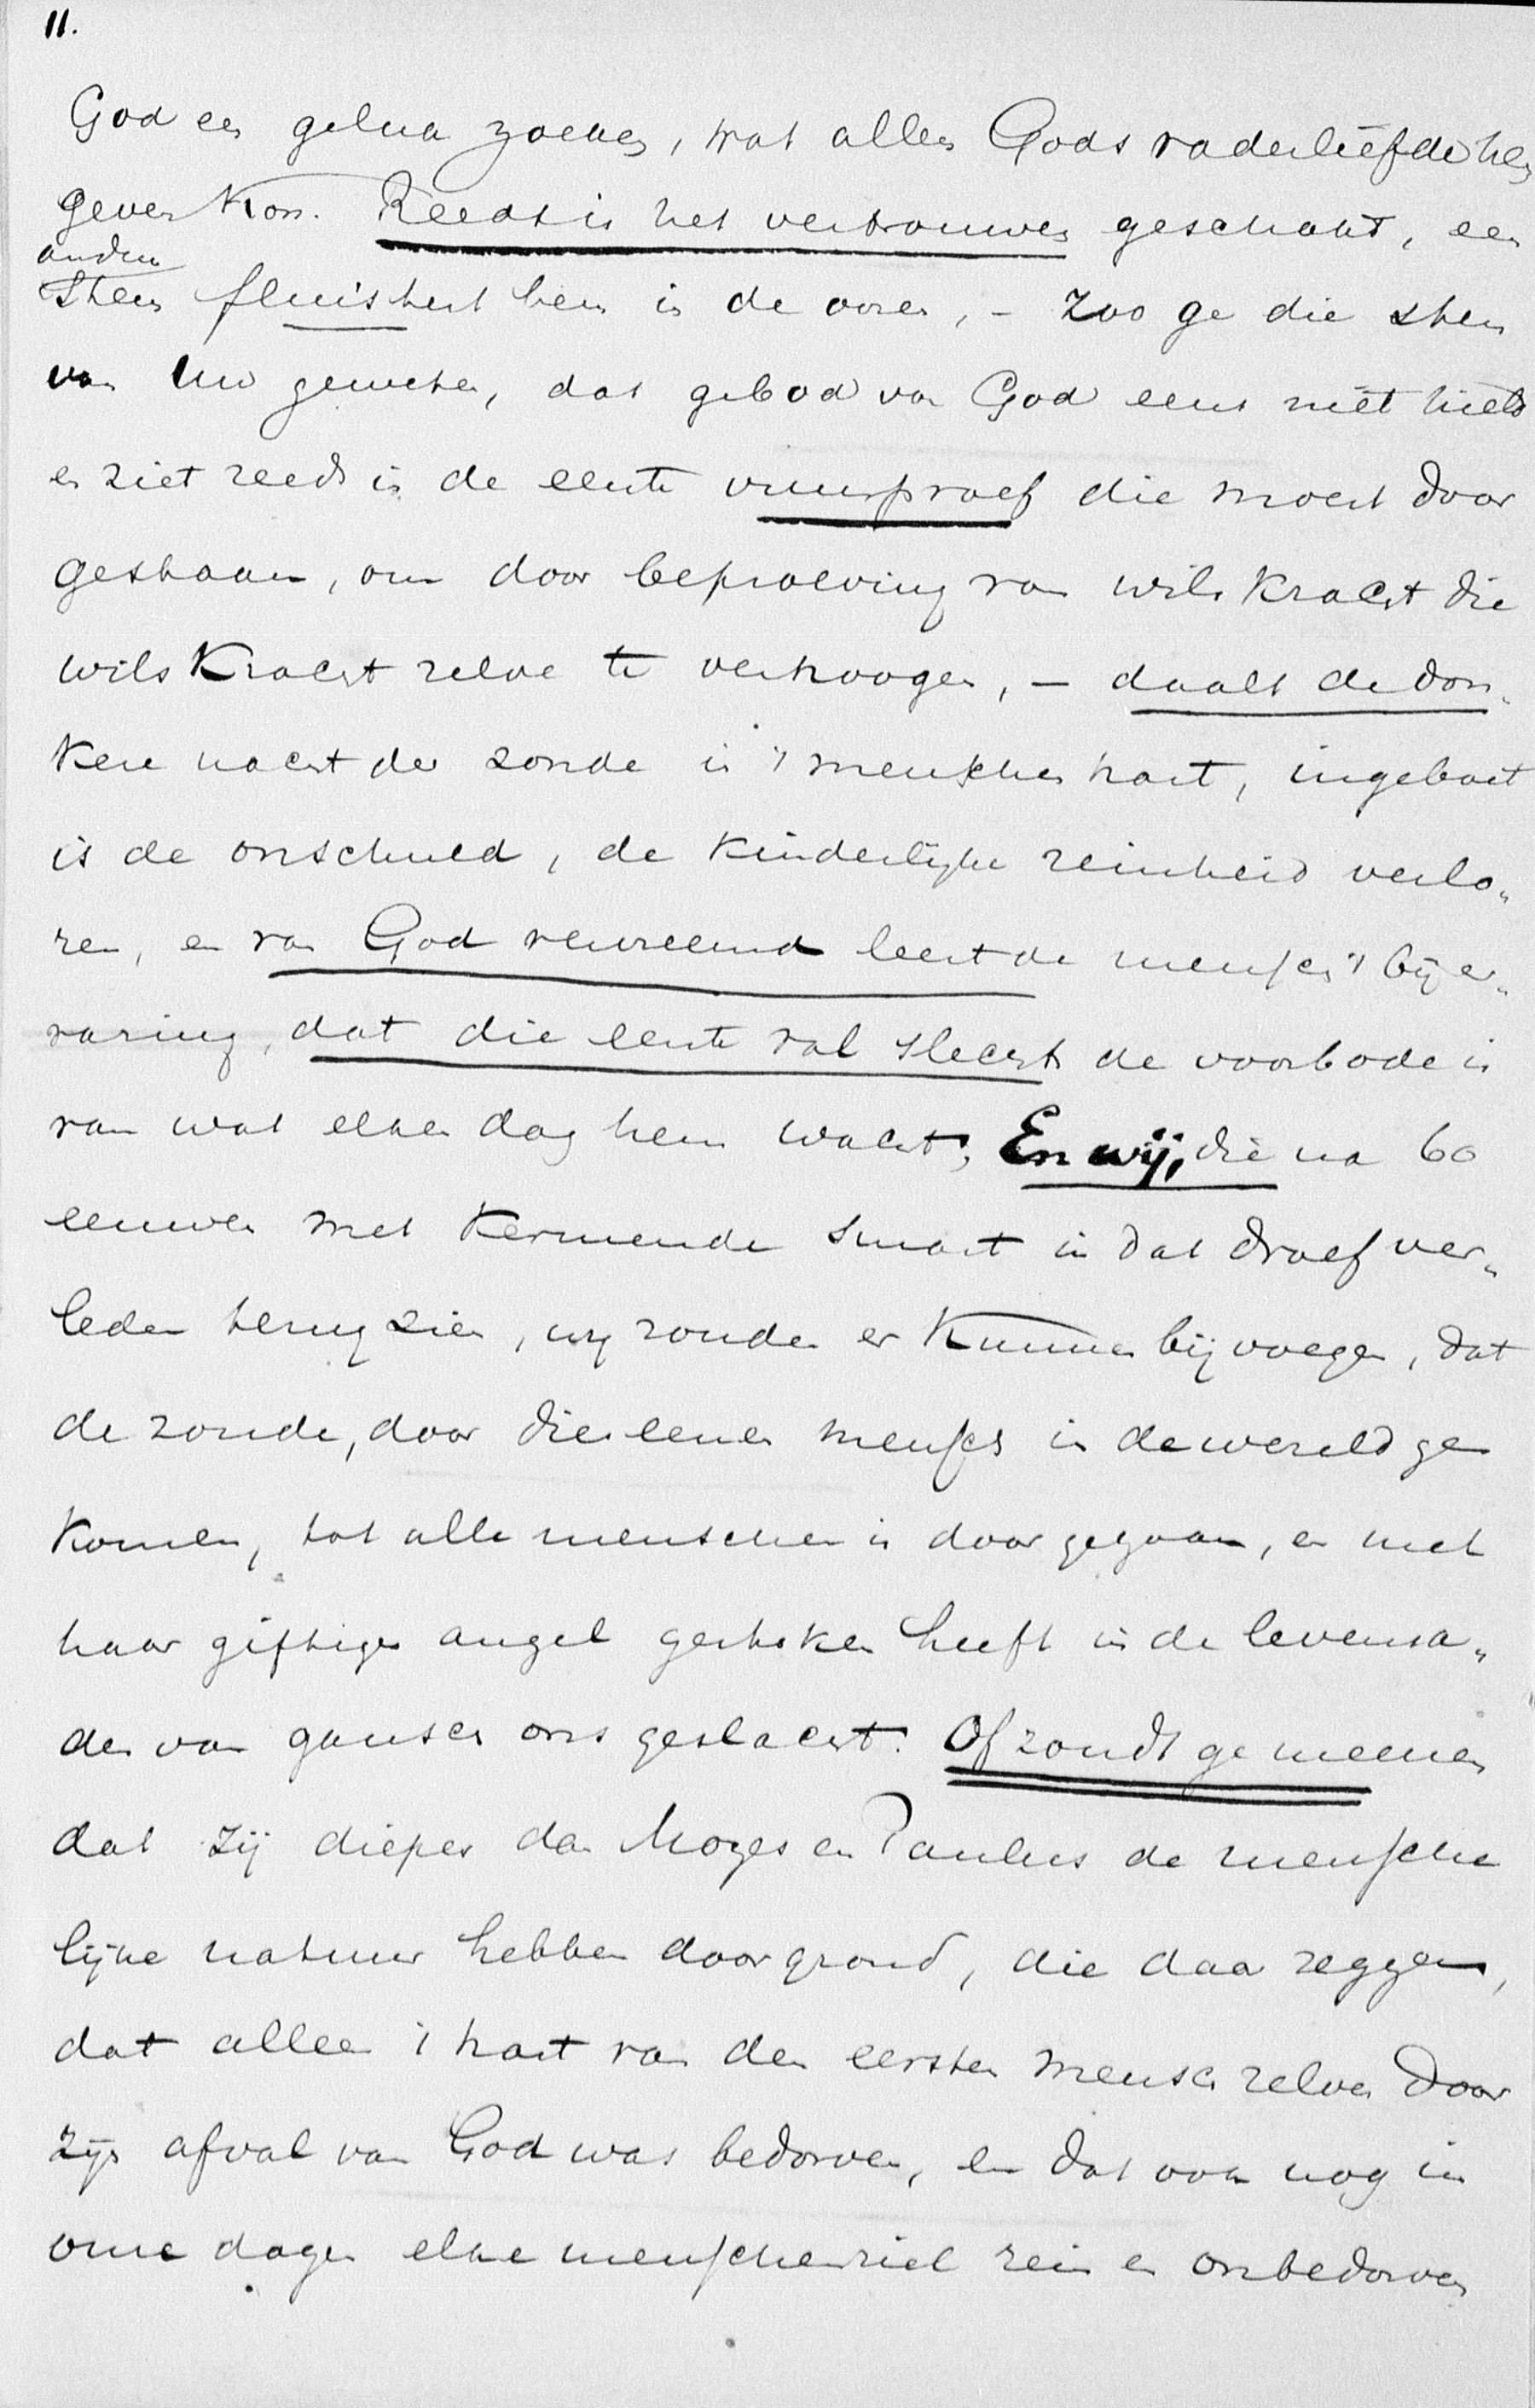 11.
God een geluk zoeken, wat alleen Gods vaderliefde hen
geven kon. Reeds is het vertrouwen geschokt, een
andere
stem fluistert hem in de ooren, – Zoo ge die stem
van Uw geweten, dat gebod van God eens niet hield
en ziet reeds in de eerste vuurproef die moest door
gestaan, om door beproeving van wilskracht die
wilskracht zelve te verhoogen, – daalt de don„
kere nacht der zonde in 't menschenhart, ingeboet
is de onschuld, de kinderlijke reinheid verlo„
ren, en van God vervreemd leert de mensch 't bij er„
varing, dat die eerste val slechts de voorbode is
van wat elken dag hem wacht; En wij, die na 60
eeuwen met kermende smart in dat droef ver„
leden terug zien, wij zouden er kunnen bijvoegen, dat
de zonde, door dien eenen mensch in de wereld ge
komen, tot alle menschen is doorgegaan, en met
haar giftigen angel gestoken heeft in de levensa„
der van gansch ons geslacht. Of zoudt ge meenen
dat zij dieper dan Mozes en Paulus de mensche
lijke natuur hebben doorgrond, die daar zeggen,
dat alleen 't hart van den eersten mensch zelven door
zijn afval van God was bedorven, en dat ook nog in
onze dagen elke menschenziel rein en onbedorven